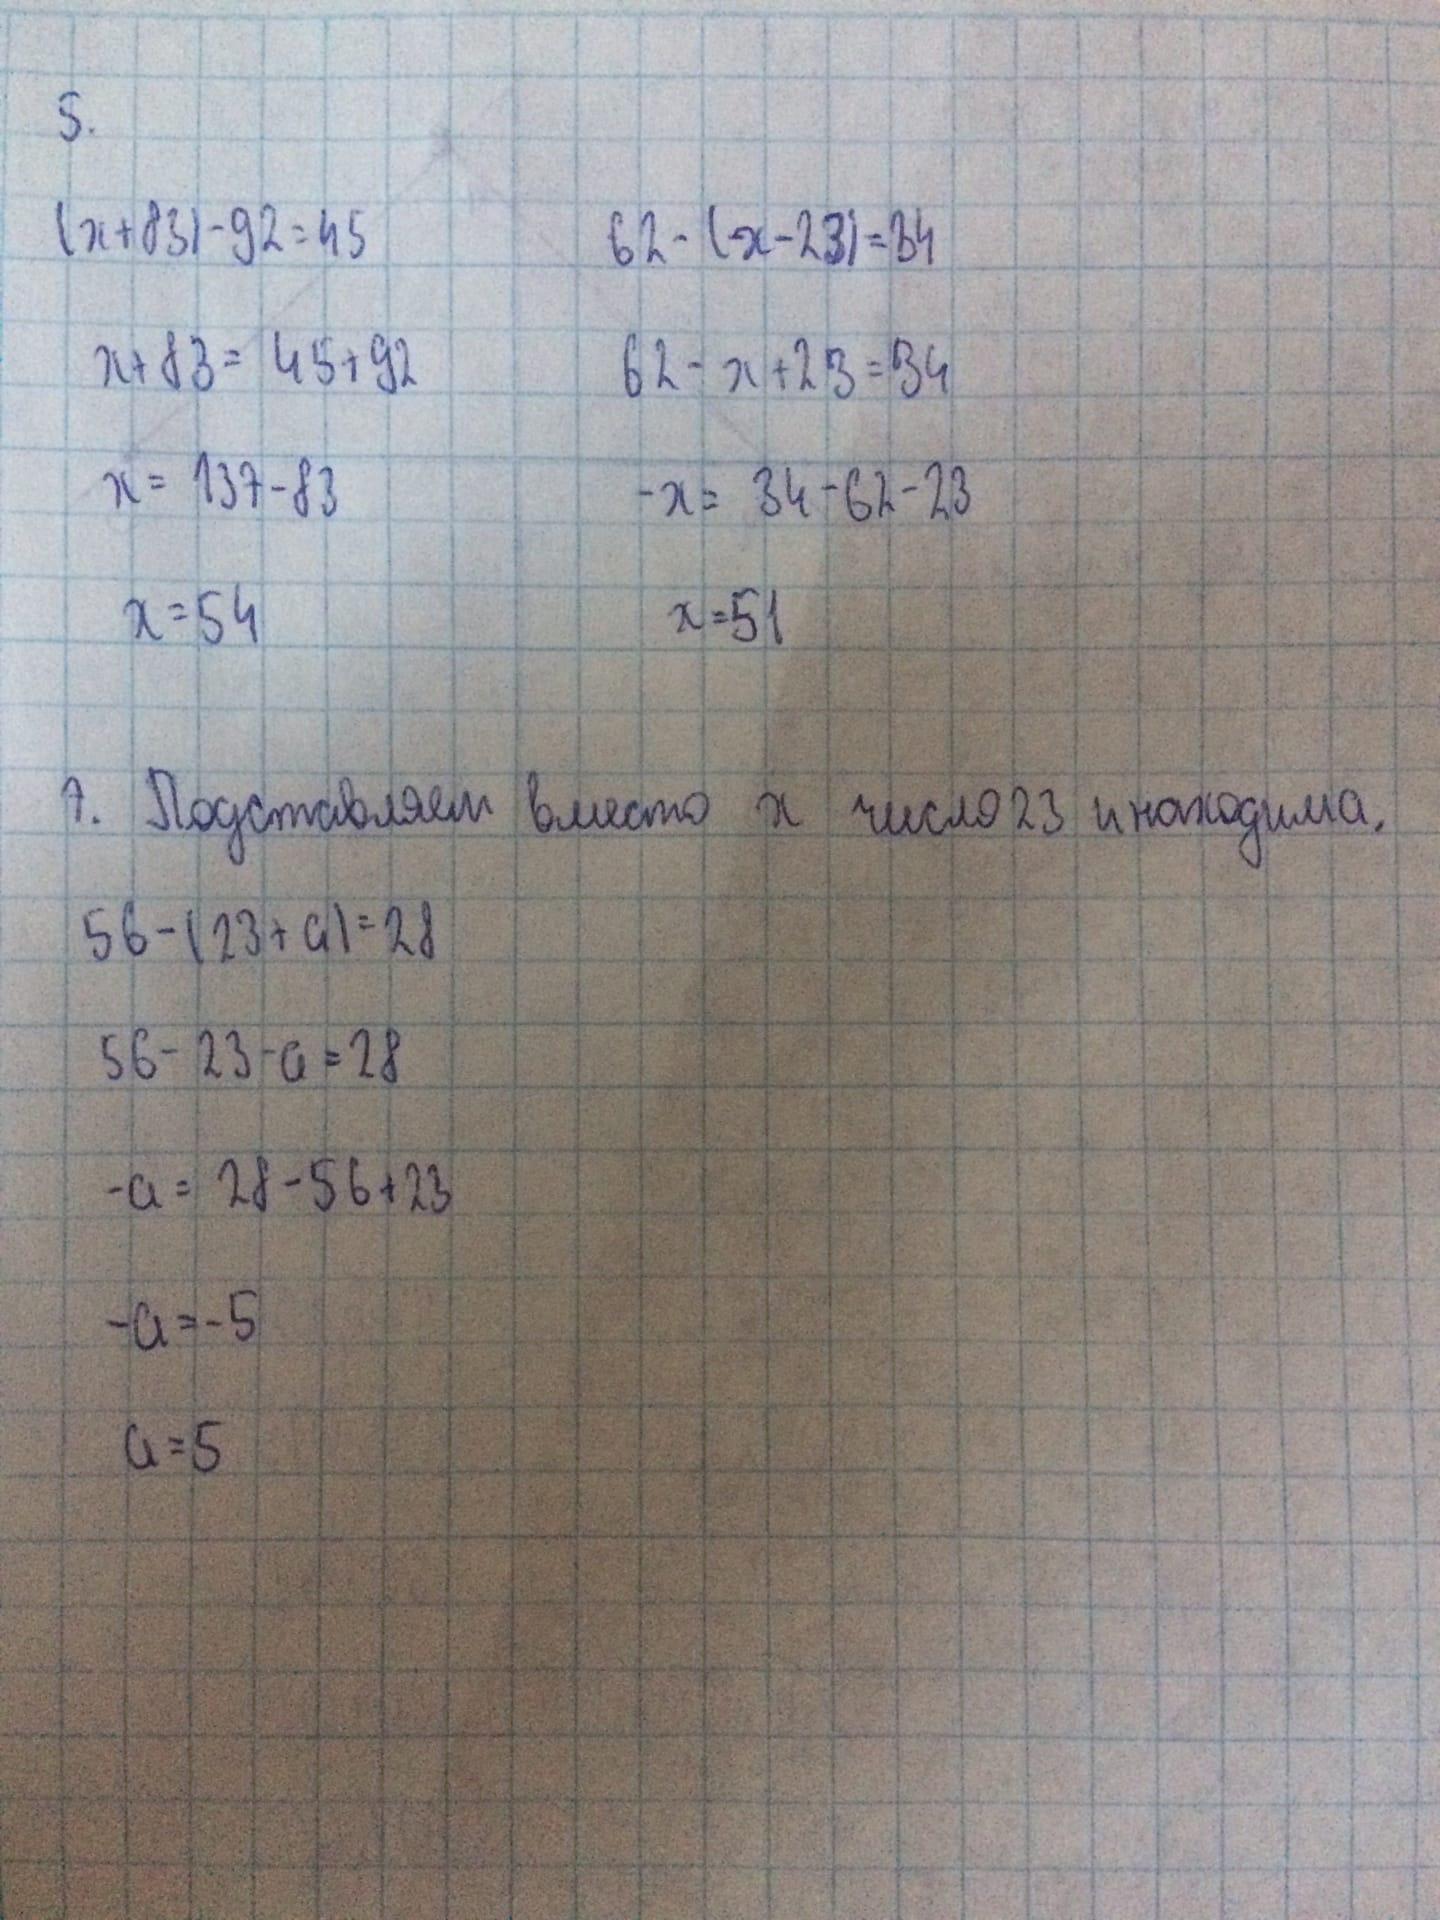 5.
(x+83)-92=45
x+83= 45+92
x= 137-83
x=54
62-(x-23)=34
62-x+23=34
-x= 34-62-23
x=51
7. Подставляем вместо x число 23 и находим a.
56-(23+a)=28
56-23-a=28
-a= 28-56+23
-a=-5
a=5